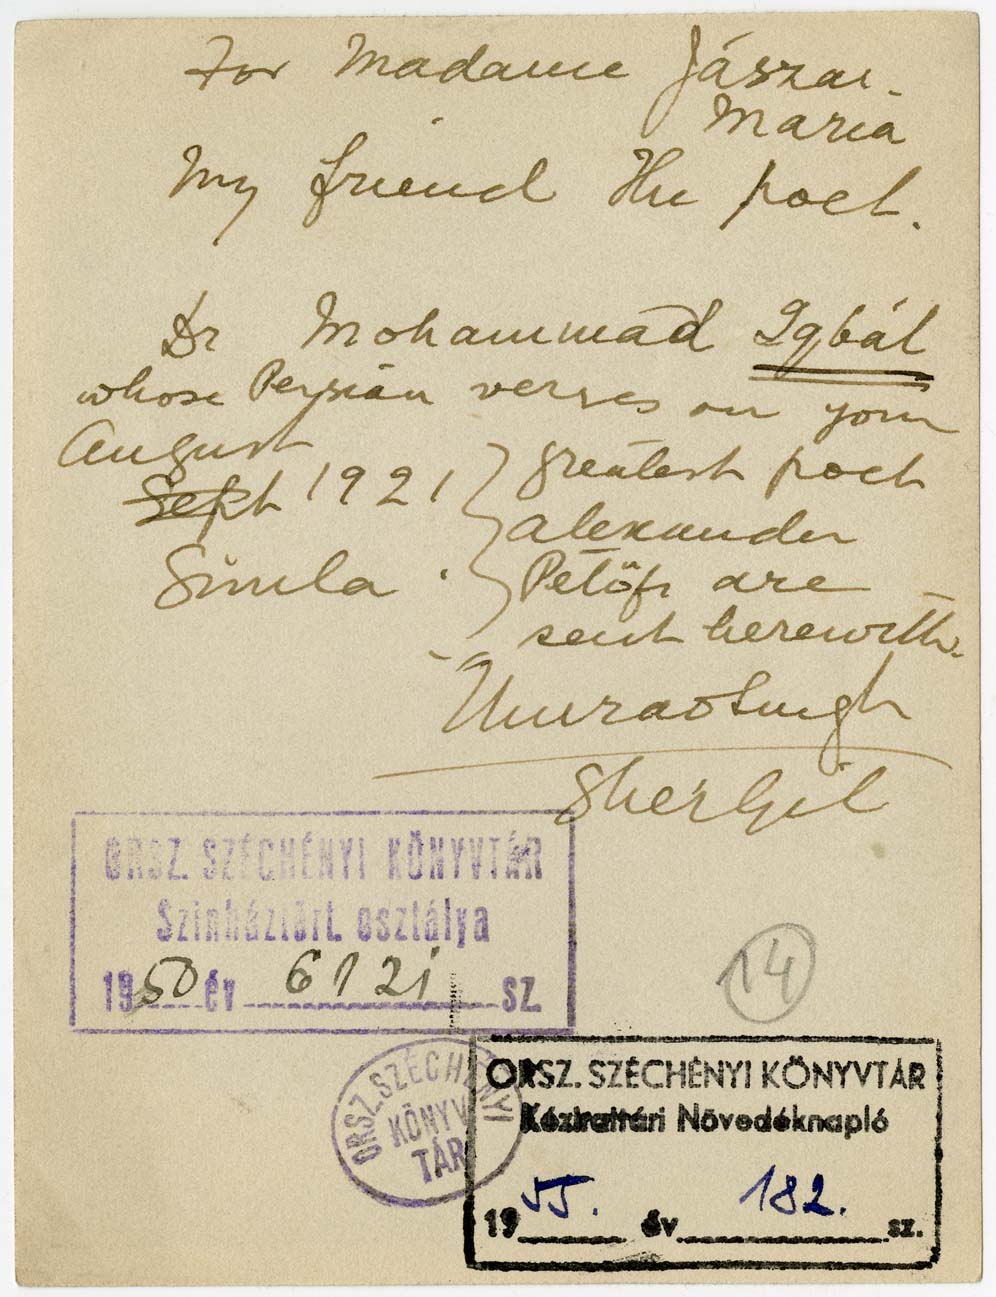 For Madame Jászai
Maria
My friend the poet.
Dr Mohammad Iqbál
whose Persian verses on your
August
Sept 1921
Simla.
greatest poet
Alexander
Petőfi are
sent herewith.
Umrao Singh
Shergil
ORSZ. SZÉCHÉNYI KÖNYVTÁR
Szinháztört. osztálya
1950 év 6121 sz.
14
ORSZ. SZÉCHÉNYI
KÖNYV
TÁR
ORSZ. SZÉCHÉNYI KÖNYVTÁR
Kézirattári Növedéknapló
1955. év 182. sz.